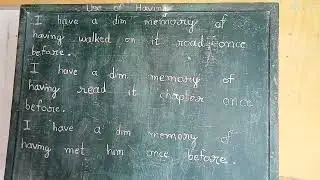 Use of Having
I have a dim memorry of
having walked on it road once
before.
I have a dim memory of
having read it chapter once
before.
I have a dim memory of
having met him once before.